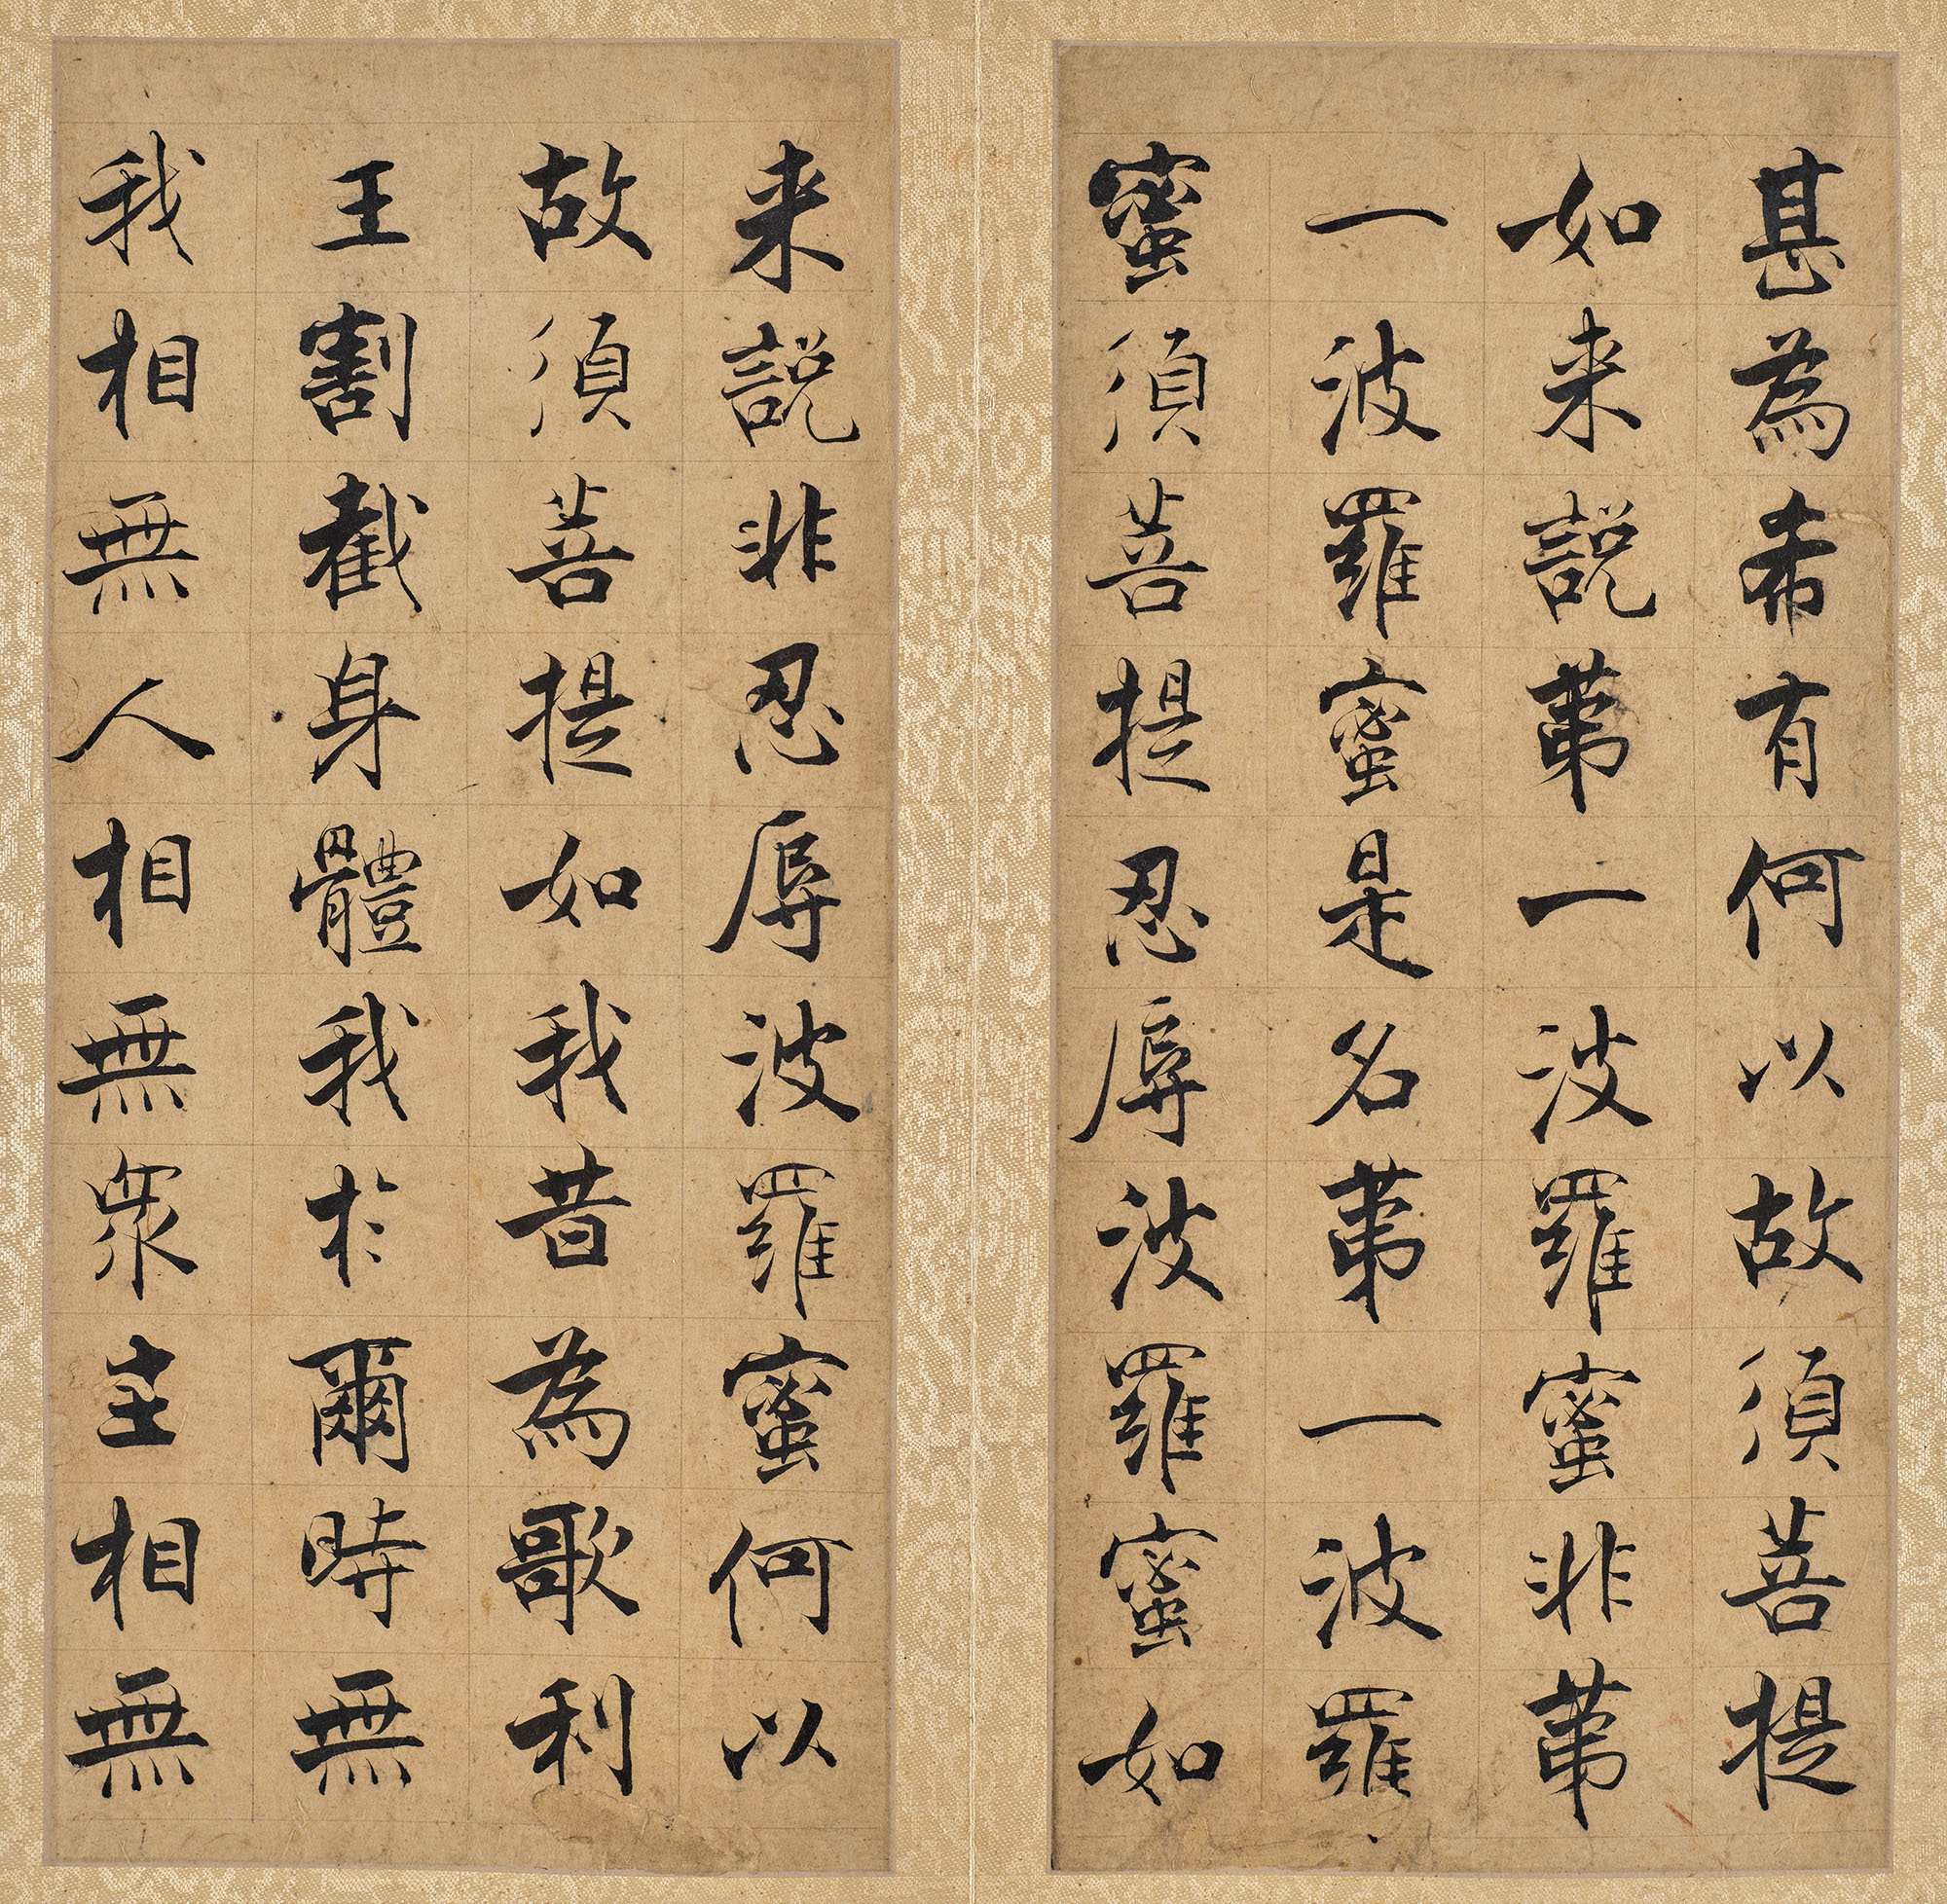 甚為希有何以故須菩提
如来説苐一波羅蜜非苐
一波羅蜜是名苐一波羅
蜜須菩提忍辱波羅蜜如
来説非忍辱波羅蜜何以
故須菩提如我昔為歌利
王割截身體我於爾時無
我相無人相無眾生相無